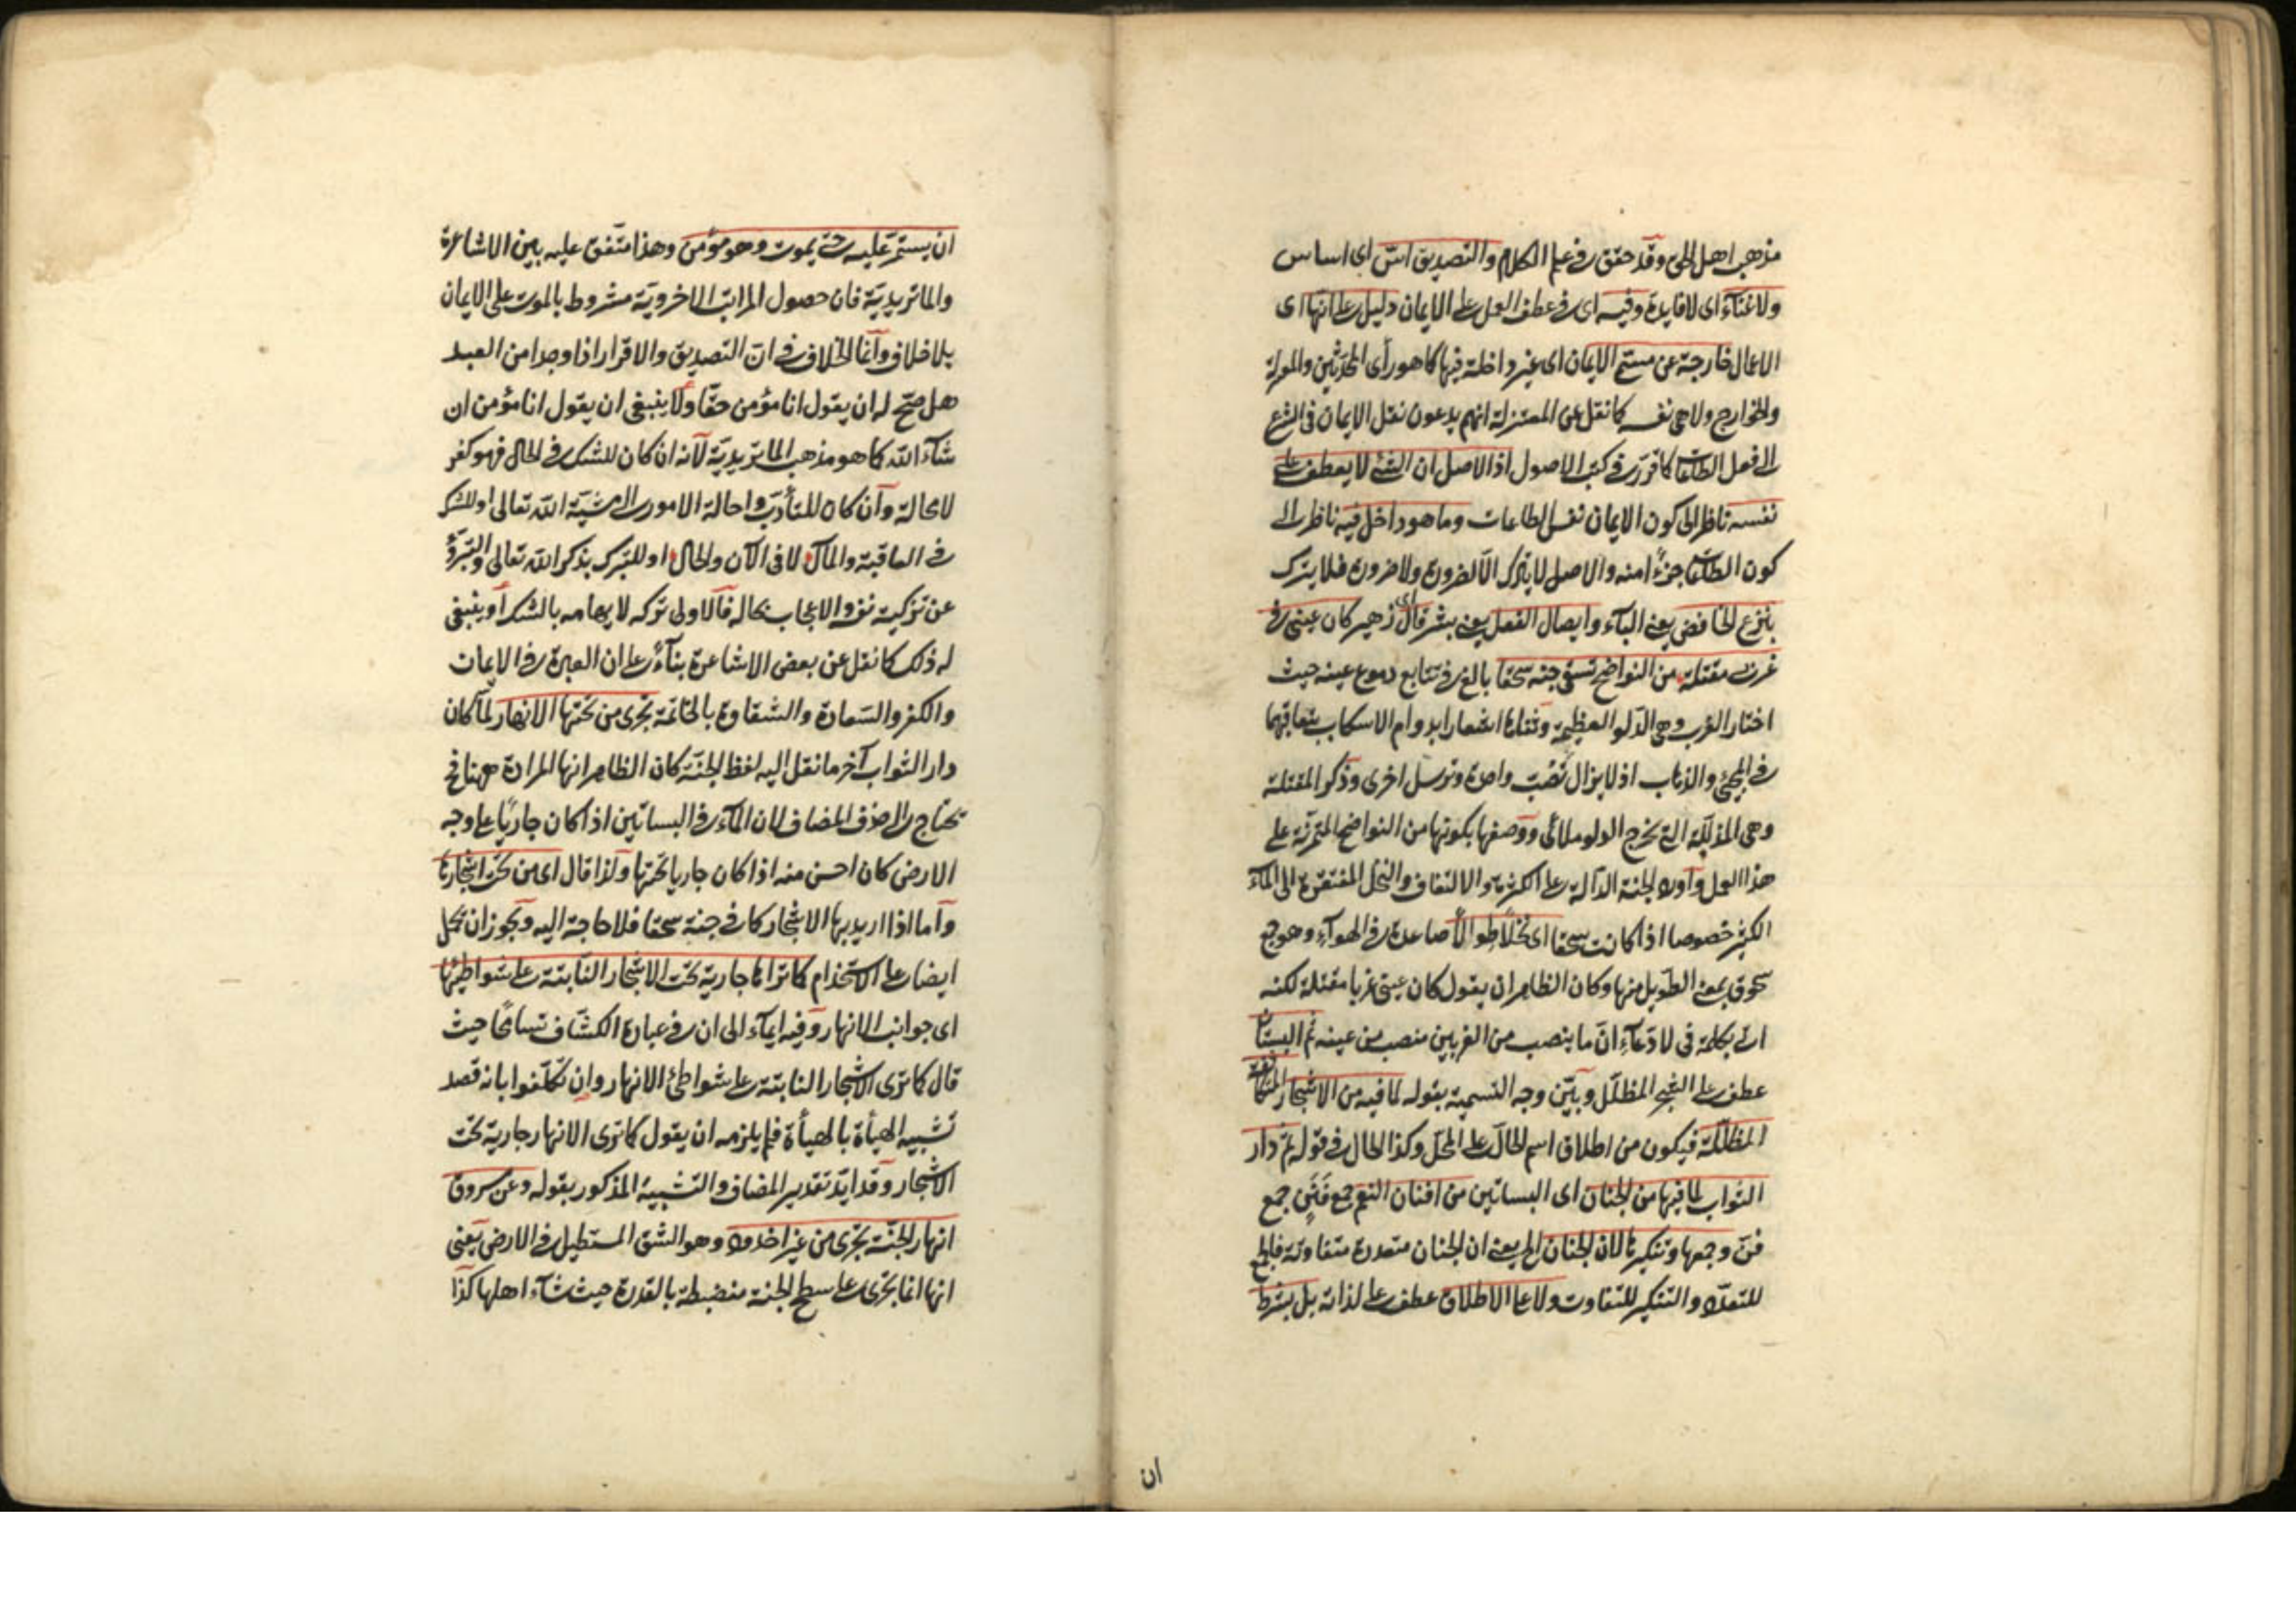 مذهب اهل الحق وقد حقق فى علم الكلام والتصديق اسّ اى اساس
ولا غنآء اى لا فايدة وفيه اى فى عطف العمل على الايمان دليل على انها اى
الاعمال خارجة عن مسمّى الايمان اى غير داخلة فيها كما هو رأى المحدّثين والمعتزلة
والخوارج ولا هى نفسه كما نقل عن المعتزلة انهم يدعون نقل الايمان فى الشرع
الى فعل الطاعات كما قرّر فى كتب الاصول اذ الاصل ان الشئ لا يعطف على
نفسه ناظر الى كون الايمان نفس الطاعات وما هو داخل فيه ناظر الى
كون الطاعات جزءًا منه والاصل لا يترك الّا لضرورة ولا ضرورة فلا يترك
بنزع الخافض يعنى البآء وايصال الفعل يعنى بشر قال اى زهير كان عينى فى
غربى مقتلة من النواضح تسقى جنة سحقا بالغ فى تتابع دموع عينه حيث
اختار الغرب وهى الدلو العظيمة وثناها اشعارا بدوام الاسكاب بتعاقبهما
فى المجئ والذهاب اذ لا يزال تُصَبّ واحدة وترسل اخرى وذكر المقتلة
وهى المذلّلة التى تخرج الدلو ملأى ووصفها بكونها من النواضح المتمرّنة على
هذا العمل واورد الجنة الدآلة على الكثرة والالتفاف والنخل المفتقرة الى المآء
الكثير خصوصا اذا كانت سحقا اى نخلًا طوالًا صاعدة فى الهوآء وهو جمع
سحوق بمعنى الطويل منها وكان الظاهر ان يقول كان عينى غربا مقتلة لكنه
اتى بكلمة فى لادّعآء انّ ما ينصب من الغربين منصب من عينه ثم البستان
عطف على الشجر المظلّل وبيّن وجه التسمية بقوله لما فيه من الاشجار المتكاثفة
المظلّلة فيكون من اطلاق اسم الحالّ على المحلّ وكذا الحال فى قوله ثمّ دار
الثواب لما فيها من الجنان اى البساتين من افنان النعم جمع فَنَنٍ جمع
فنّ وجمعها وتنكيرها لان الجنان الخ يعنى ان الجنان متعددة متفاوتة فالجمع
للتعدّد والتنكير للتفاوت ولا على الاطلاق عطف على لذاته بل بشرط
ان
ان يستمرّ عليه حتى يموت وهو مؤمن وهذا متّفق عليه بين الاشاعرة
والماتريديّة فان حصول المراتب الاخرويّة مشروط بالموت على الايمان
بلا خلاف وانما الخلاف فى انّ التصديق والاقرار اذا وجدا من العبد
هل صحّ له ان يقول انا مؤمن حقّا ولا ينبغى ان يقول انا مؤمن ان
شآء الله كما هو مذهب الماتريديّة لانه ان كان للشك فى الحال فهو كفر
لا محالة وان كان للتأدّب واحالة الامور الى مشيّة الله تعالى او للشك
فى العاقبة والمآل لا فى الآن والحال او للتبرّك بذكر الله تعالى والتبرّؤ
عن تزكية نفسه والاعجاب بحاله فالاولى تركه لايهامه بالشك او ينبغى
له ذلك كما نقل عن بعض الاشاعرة بنآءً على ان العبرة فى الايمان
والكفر والسّعادة والشقاوة بالخاتمة تجرى من تحتها الانهار لمّا كان
دار الثواب آخر ما نقل اليه لفظ الجنّة كان الظاهر انها المرادة ههنا فح
يحتاج الى حذف المضاف لان المآء فى البساتين اذا كان جاريًا على وجه
الارض كان احسن منه اذا كان جاريا تحتها ولذا قال اى من تحت اشجارها
واما اذا اريد بها الاشجار كما فى جنة سحقا فلا حاجة اليه ويجوز ان يحمل
ايضا على الاستخدام كما تراها جارية تحت الاشجار النّابتة على شواطئها
اى جوانب الانهار وفيه ايمآء الى ان فى عبارة الكشّاف تسامحًا حيث
قال كما ترى الاشجار النابتة على شواطئ الانهار وان تكلّفوا بانه قصد
تشبيه الهيأة بالهيأة فلم يلزمه ان يقول كما ترى الانهار جارية تحت
الاشجار وقد ايّد تقدير المضاف والتشبيه المذكور بقوله وعن مسروق
انهار الجنّة تجرى من غير اخدود وهو الشق المستطيل فى الارض يعنى
انها انما تجرى على سطح الجنة منضبطة بالقدرة حيث شآء اهلها كذا